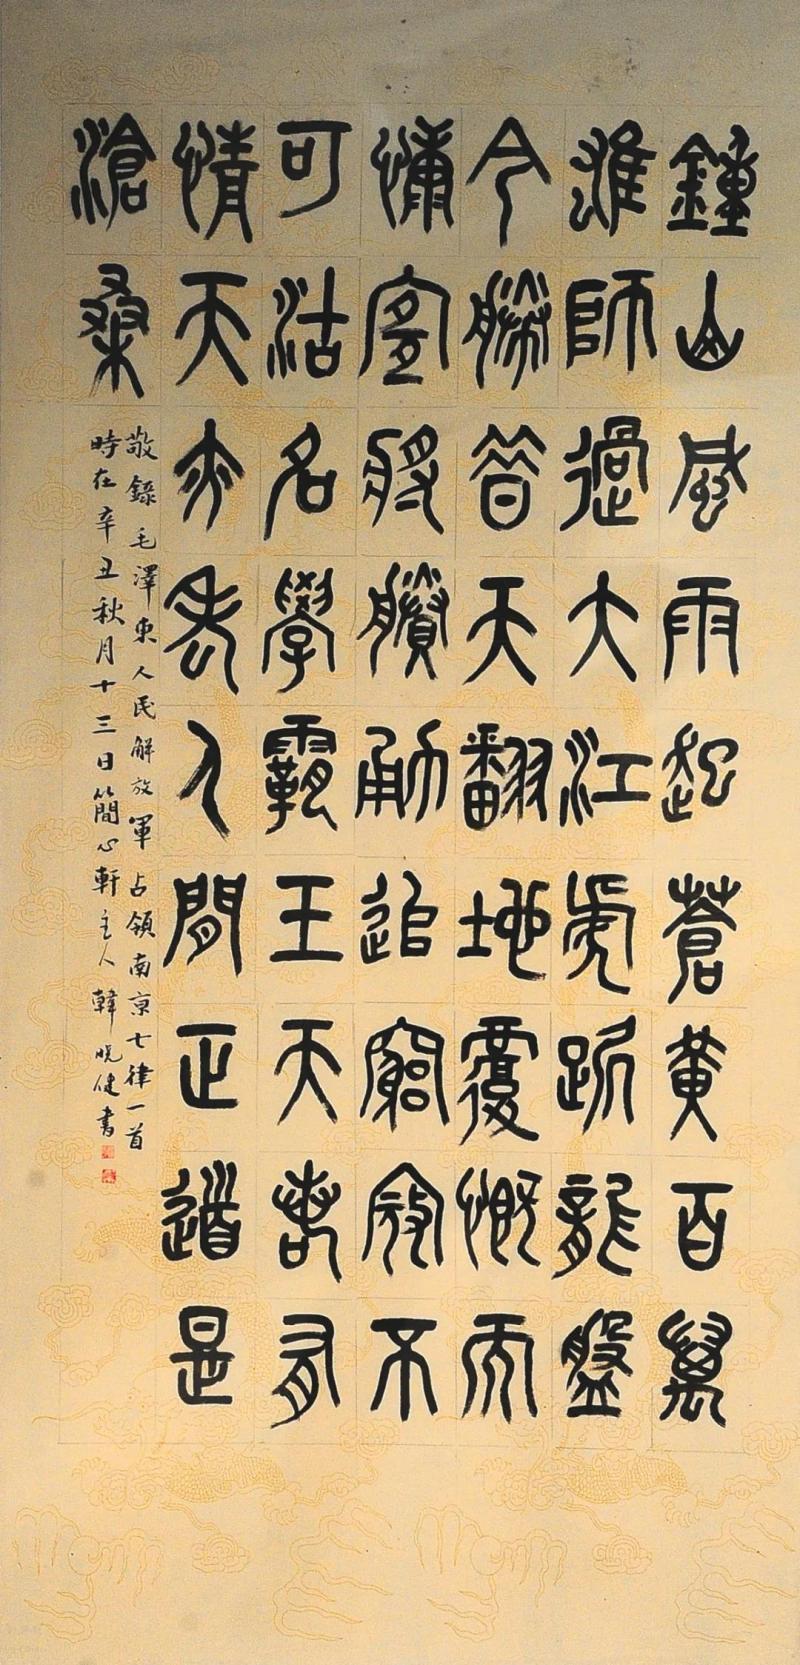 鍾山風雨起蒼黃百萬
雄師過大江虎踞龍盤
今勝昔天翻地覆慨而
慷宜將賸勇追窮寇不
可沽名學霸王天若有
情天亦老人間正道是
滄桑
敬錄毛澤東人民解放軍占領南京七律一首
時在辛丑秋月十三日簡心軒主人韓晚健書